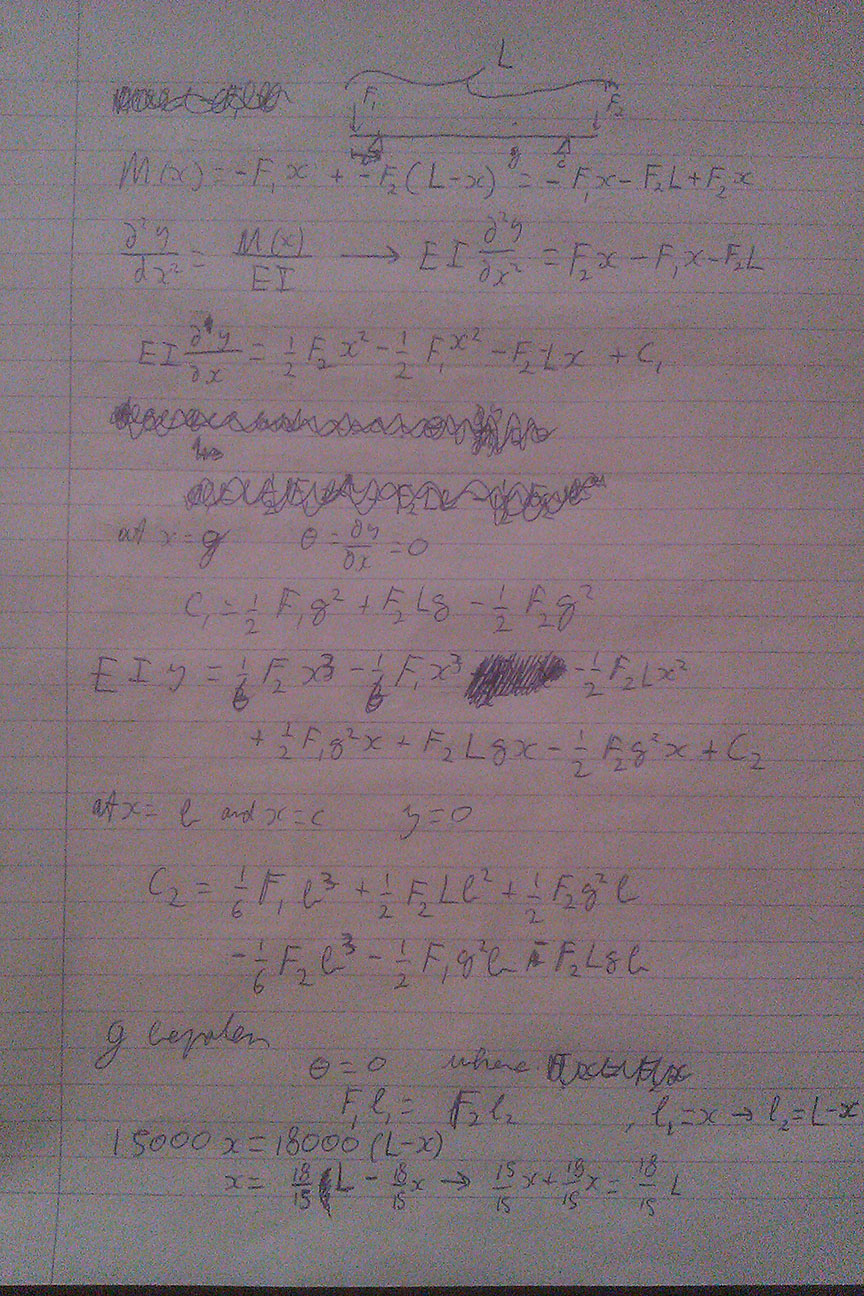 L
F₁ F₂
g c
M(x) = -F₁x + -F₂(L-x) = -F₁x - F₂L + F₂x
∂²y/dx² = M(x)/EI → EI ∂²y/∂x² = F₂x - F₁x - F₂L
EI ∂y/∂x = 1/2 F₂x² - 1/2 F₁x² - F₂Lx + C₁
at x = g θ = ∂y/∂x = 0
C₁ = 1/2 F₁g² + F₂Lg - 1/2 F₂g²
EIy = 1/6 F₂x³ - 1/6 F₁x³ - 1/2 F₂Lx²
+ 1/2 F₁g²x + F₂Lgx - 1/2 F₂g²x + C₂
at x = b and x = c y = 0
C₂ = 1/6 F₁b³ + 1/2 F₂Lb² + 1/2 F₂g²b
- 1/6 F₂b³ - 1/2 F₁g²b - F₂Lgb
g
θ = 0 where
F₁l₁ = F₂l₂ , l₁ = x → l₂ = L-x
15000x = 18000(L-x)
x = 18/15 L - 18/15 x → 15/15 x + 18/15 x = 18/15 L